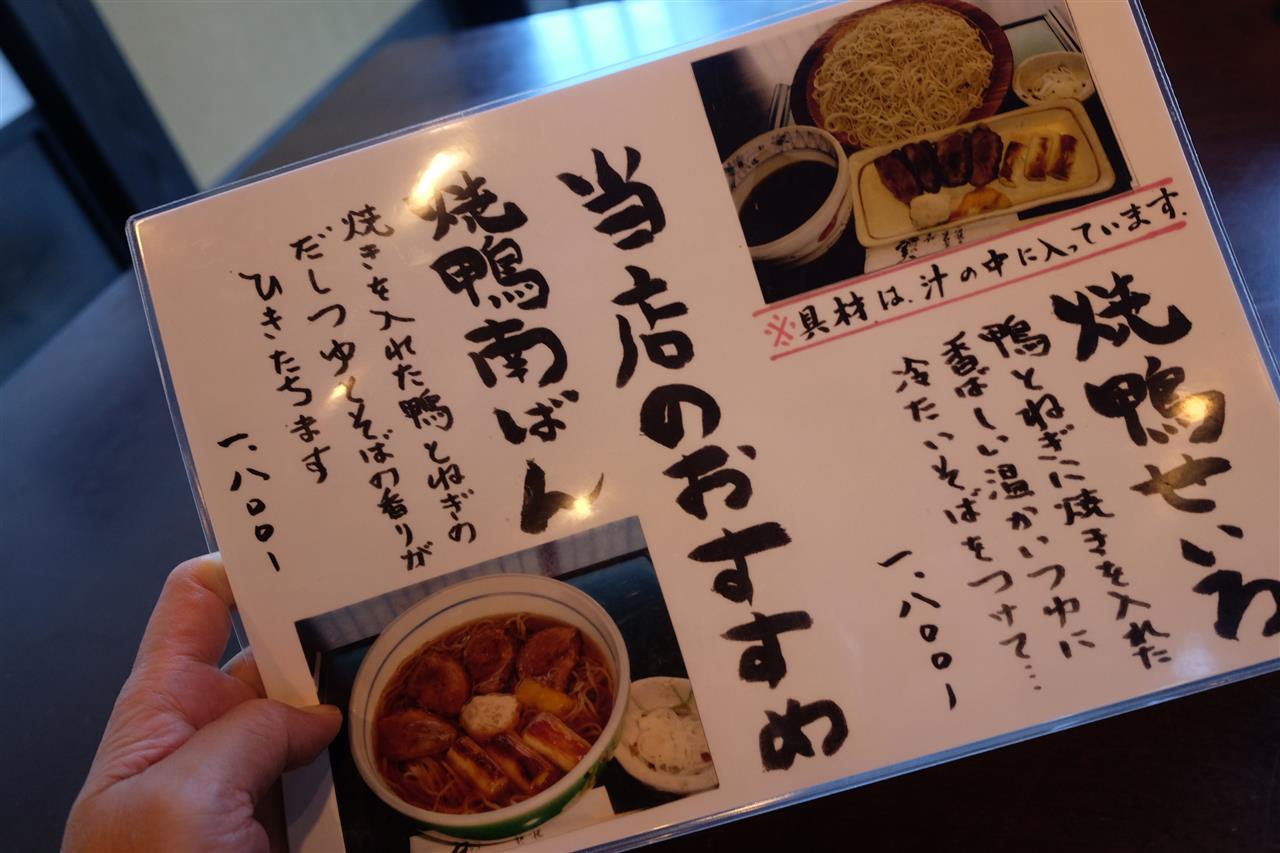 ※具材は、汁の中に入っています。
焼鴨せいろ
鴨とねぎに焼きを入れた
香ばしい温かいつゆに
冷たいそばをつけて…
一、八〇〇ー
当店のおすすめ
焼鴨南ばん
焼きを入れた鴨とねぎの
だしつゆとそばの香りが
ひきたちます
一、八〇〇ー